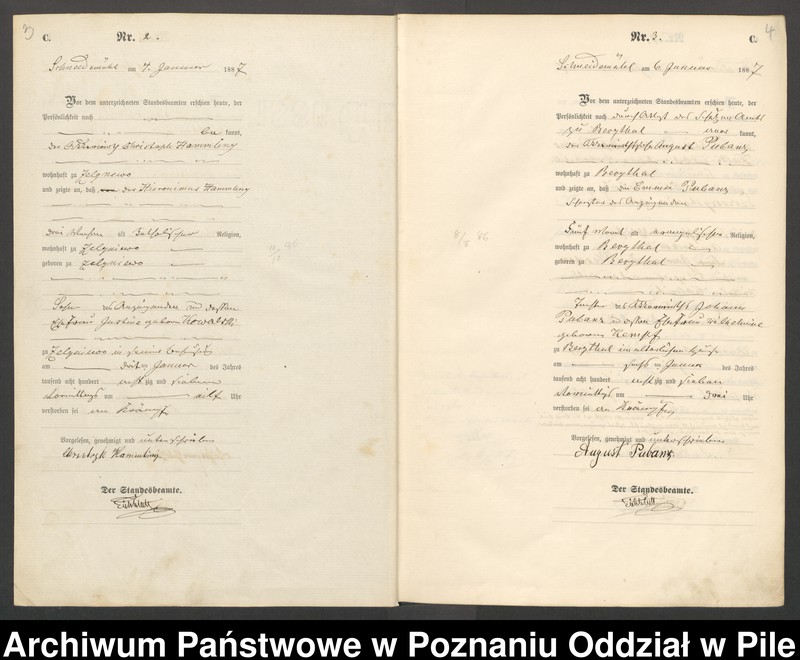 3
C.
Nr. 2.
Schneidemühl am 4. Januar 1887
Vor dem unterzeichneten Standesbeamten erschien heute, der
Persönlichkeit nach
be kannt,
der Christoph Hammling
wohnhaft zu Zelgniewo
und zeigte an, daß der Hieronimus Hammling
drei Wochen alt katholischer Religion,
wohnhaft zu Zelgniewo
geboren zu Zelgniewo
Sohn des Anzeigenden und dessen
Ehefrau Justine geborne Kowalski
zu Zelgniewo in seiner Behausung
am dritten Januar des Jahres
tausend acht hundert achtzig und sieben
Vormittags um elf Uhr
verstorben sei an Krämpf
Vorgelesen, genehmigt und unterschrieben
Hammling
Der Standesbeamte.
4
Nr. 3.
C.
Schneidemühl am 6. Januar 1887
Vor dem unterzeichneten Standesbeamten erschien heute, der
Persönlichkeit nach durch Attest des Schulzen Amts
zu Bergthal aner kannt,
der August Pubanz
wohnhaft zu Bergthal
und zeigte an, daß die Emma Pubanz
Schwester des Anzeigenden
fünf Monat alt evangelischer Religion,
wohnhaft zu Bergthal
geboren zu Bergthal
Tochter des Johann
Pubanz u dessen Ehefrau Wilhelmine
geborene Kempf
zu Bergthal im elterlichen Hause
am sechsten Januar des Jahres
tausend acht hundert achtzig und sieben
Vormittags um drei Uhr
verstorben sei an Krämpfen
Vorgelesen, genehmigt und unterschrieben
August Pubanz.
Der Standesbeamte.
Archiwum Państwowe w Poznaniu Oddział w Pile